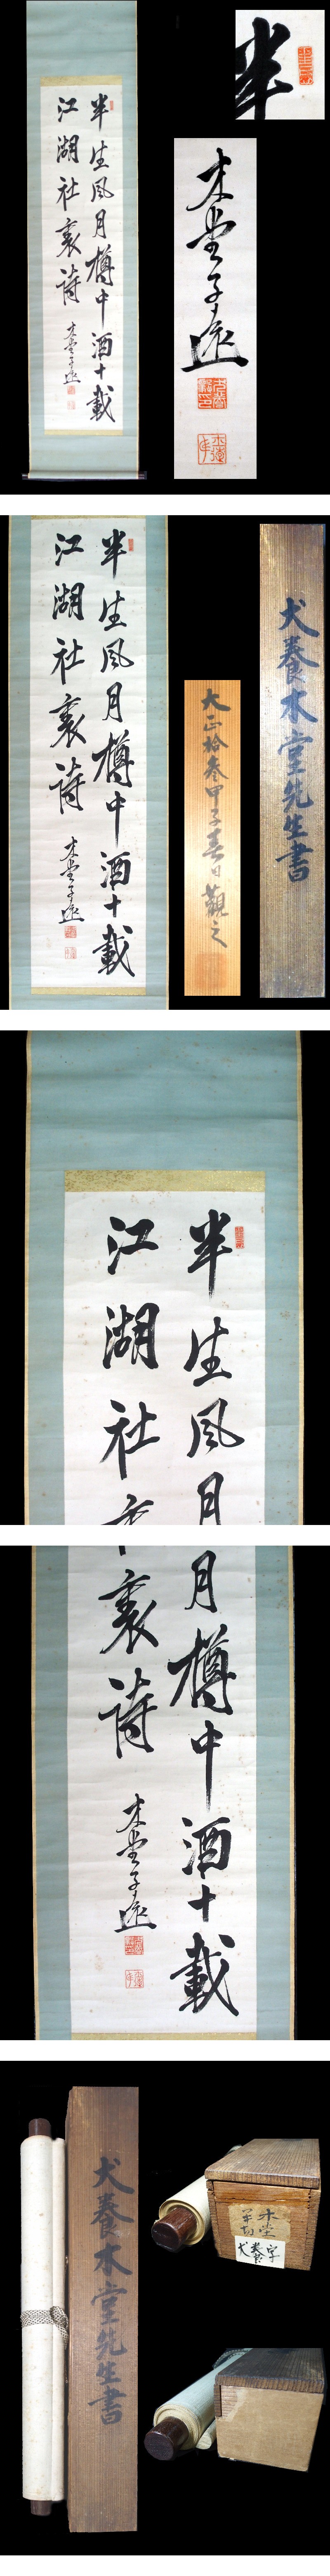 半生風月樽中酒十載
江湖社裏詩
木堂子遠
半
木堂子遠
半生風月樽中酒十載
江湖社裏詩
木堂子遠
大正拾參甲子春日觀之
犬養木堂先生書
半生風月
江湖社裏
月樽中酒十載
裏詩
木堂子遠
犬養木堂先生書
木堂
半切
犬養 字